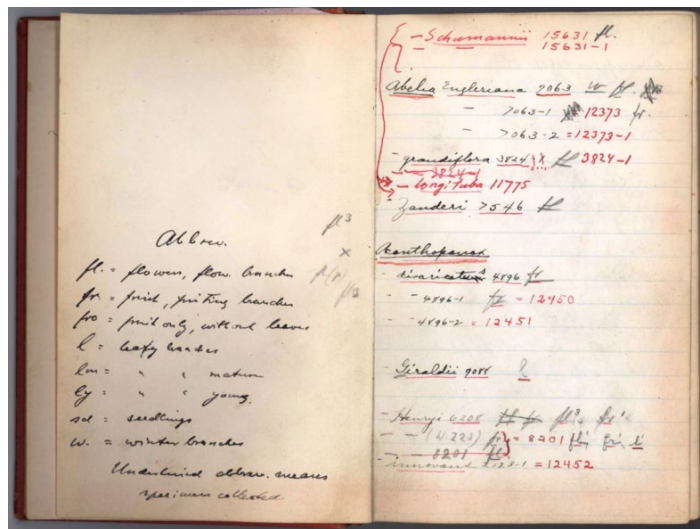 Abbrev.
fl. = flowers, flow. branches
fr. = fruit, fruiting branches
fro = fruit only, without leaves
l = leafy branches
lm = " " mature
ly = " " young
sd = seedlings
w. = winter branches
Underlined abbrev. means
specimen collected
fl³
x
- Schumannii 15631 fl.
15631-1
Abelia Engleriana 7063 w fr.
- 7063-1 12373 fr.
- 7063-2 = 12373-1
- grandiflora 3824 fl 3824-1
- 3824-1
- longituba 11775
- Zanderi 7546 fl
Acanthopanax
- divaricatum 4896 fr
- - 4896-1 fr - 12450
- - 4896-2 = 12451
- Giraldii 9088 l
- Henryi 6208 fl³ fr'
- - (W.223) fr = 8201 fl fr l
- - 8201 fl
= 12452